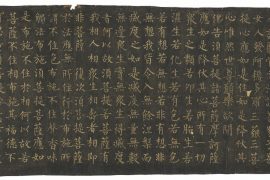 女人發阿耨多羅三藐三菩
心唯然世尊願樂欲聞
佛告須菩提諸菩薩摩訶薩
應如是降伏其心所有一切
眾生之類若卵生若胎生若
濕生若化生若有色若無色
若有想若無想若非有想非
無想我皆令入無餘涅槃而
滅度之如是滅度無量無數
無邊眾生實無眾生得滅度
者何以故須菩提若菩薩有
我相人相眾生相壽者相即
非菩薩 復次須菩提菩薩
於法應無所住行於布施所
謂不住色布施不住聲香味
觸法布施須菩提菩薩應如
是布施不住於相何以故若
菩薩不住相布施其福德不